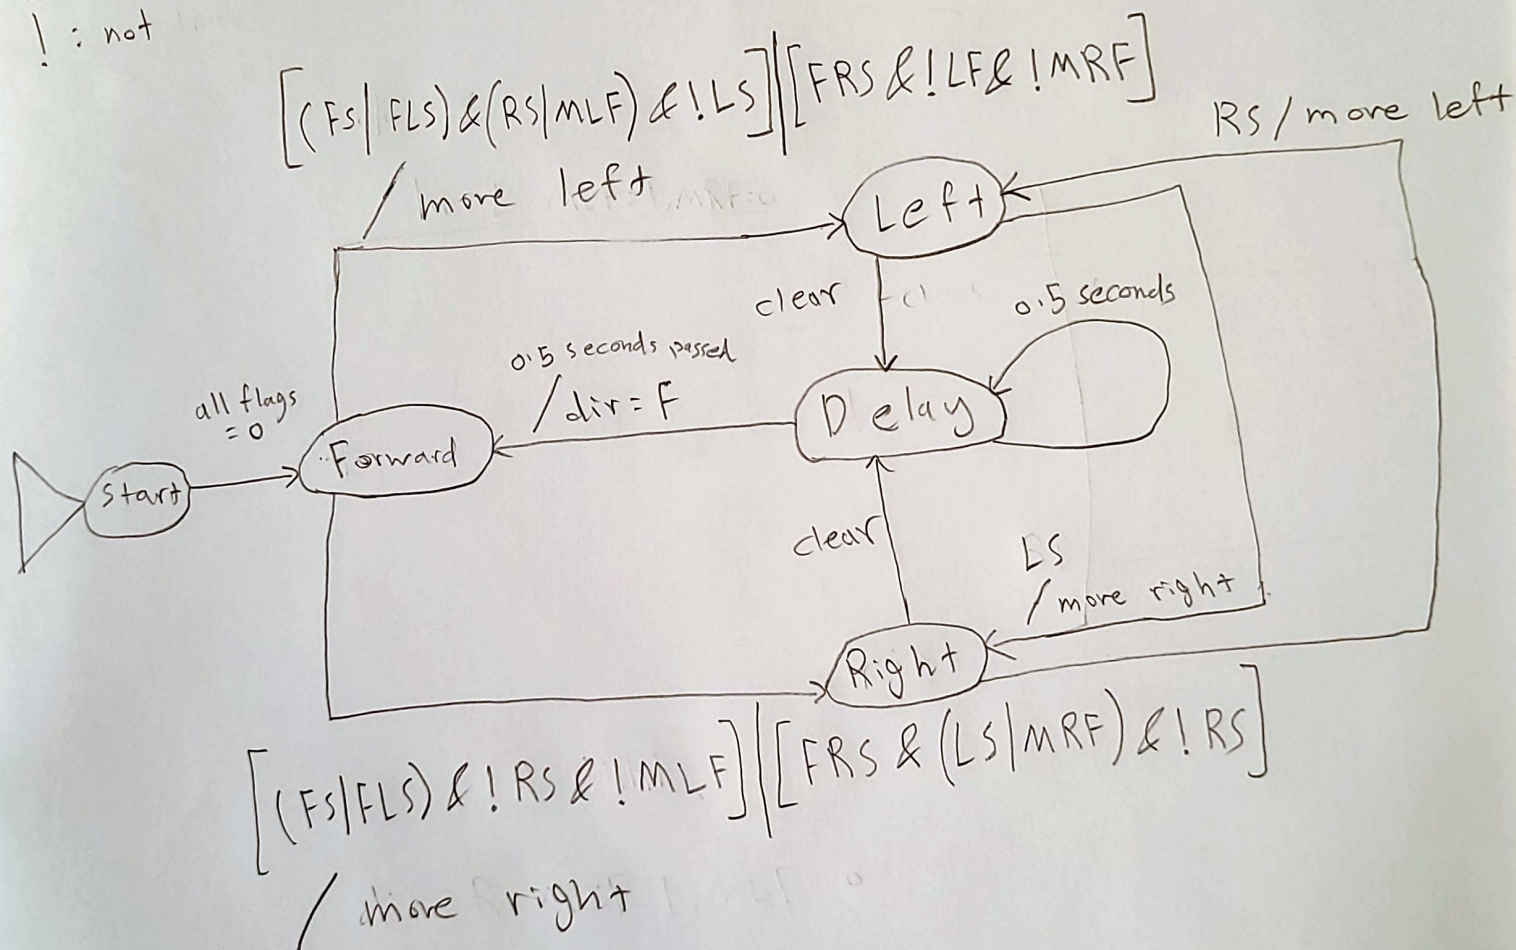 ! : not
[(FS| FLS) &(RS|MLF) & !LS]|[FRS &!LF& !MRF]
/ more left
RS / more left
Left
clear
0.5 seconds
0.5 seconds passed
/dir = F
Delay
all flags
= 0
Forward
Start
clear
LS
/ more right
Right
[(FS|FLS) & !RS & !MLF]|[FRS & (LS|MRF) & !RS]
/ more right